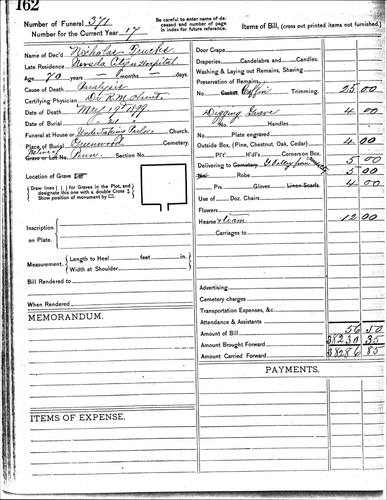 162
Number of Funeral 371
Number for the Current Year 17
Be carefully to enter name of deceased and number of page in index for future reference.
Name of Dec'd Nicholas
Late Residence City Hospital
Age 70 years — months — days.
Cause of Death Paralysis
Certifying Physician Dr R.M.
Date of Death May 19 1899
Date of Burial " 21 "
Funeral at House or Undertaking Parlors Church.
Place of Burial Greenwood Cemetery.
Grave or Lot No. Section No.
Location of Grave
Draw lines ( ) for Graves in the Plot, and designate this one with a double Cross
Show position of monument by
Inscription on Plate.
Measurement. Length to Heel feet in.
Width at Shoulder
Bill Rendered to
When Rendered
MEMORANDUM.
ITEMS OF EXPENSE.
Items of Bill, (cross out printed items not furnished.)
Door Crape
Draperies, Candelabra and Candles.
Washing & Laying out Remains, Shaving
Preservation of Remains
No. Casket Coffin Trimming. 25 00
Digging Grave 4 00
No. Handles
No. Plate engraved
Outside Box, (Pine, Chestnut, Oak, Cedar) 4 00
No. Pl'y H'd'l's Corners on Box.
Delivering to Cemetery 5 00
Robe 5 00
Prs. Gloves Linen Scarfs. 4 00
Use of Doz. Chairs
Flowers
Hearse & team 12 00
Carriages to
Advertising
Cemetery charges
Transportation Expenses, &c.
Attendance & Assistants
Amount of Bill 56 50
Amount Brought Forward 38230 35
Amount Carried Forward 38286 85
PAYMENTS.